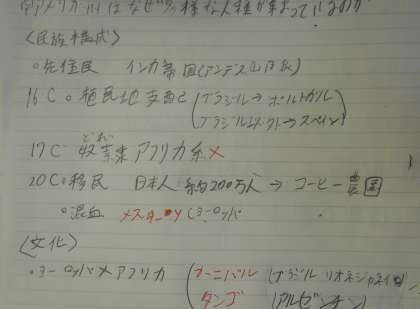 南アメリカ州はなぜ多様な人種が集まっているのか
〈民族構成〉
○先住民 インカ帝国(アンデス山脈)
16C ○植民地支配 (ブラジル→ポルトガル
ブラジル以外→スペイン)
17C 奴隷 アフリカ系
どれい
20C○移民 日本人 約200万人 ⇒ コーヒー農園
○混血 メスチーソ (ヨーロッパ
〈文化〉
・ヨーロッパ×アフリカ (カーニバル (ブラジル リオネジャネイロ)
タンゴ (アルゼンチン)